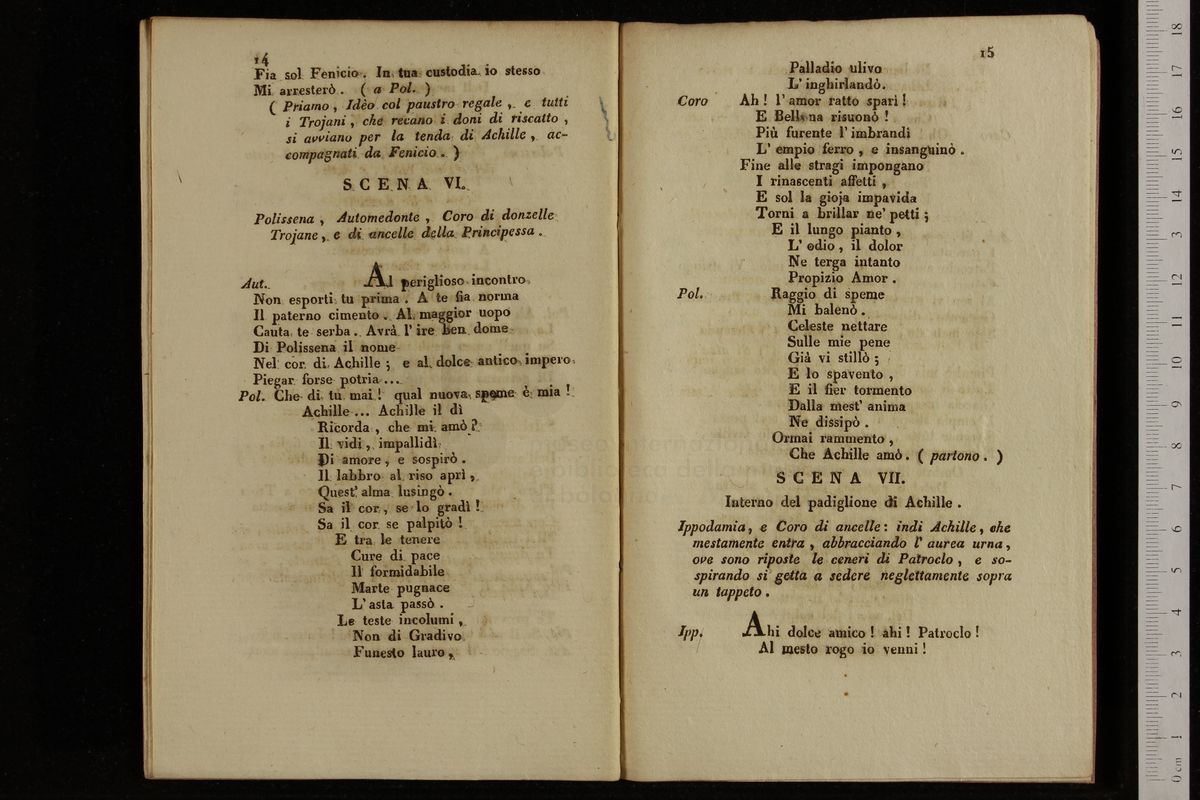 14
Fia sol Fenicio. In tua custodia io stesso
Mi arresterò. ( a Pol. )
( Priamo, Idèo col paustro regale, e tutti
i Trojani, che recano i doni di riscatto,
si avviano per la tenda di Achille, ac-
compagnati da Fenicio. )
SCENA VI.
Polissena, Automedonte, Coro di donzelle
Trojane, e di ancelle della Principessa.
Aut. Al periglioso incontro
Non esporti tu prima. A te fia norma
Il paterno cimento. Al maggior uopo
Cauta te serba. Avrà l'ire ben dome
Di Polissena il nome
Nel cor di Achille; e al dolce antico impero
Piegar forse potria...
Pol. Che di tu mai! qual nuova speme è mia!
Achille... Achille il dì
Ricorda, che mi amò?
Il vidi, impallidì
Di amore, e sospirò.
Il labbro al riso aprì,
Quest' alma lusingò.
Sa il cor, se lo gradì!
Sa il cor se palpitò!
E tra le tenere
Cure di pace
Il formidabile
Marte pugnace
L'asta passò.
Le teste incolumi,
Non di Gradivo
Funesto lauro,
15
Palladio ulivo
L'inghirlandò.
Coro Ah! l'amor ratto sparì!
E Bellona risuonò!
Più furente l'imbrandì
L'empio ferro, e insanguinò.
Fine alle stragi impongano
I rinascenti affetti,
E sol la gioja impavida
Torni a brillar ne' petti;
E il lungo pianto,
L'odio, il dolor
Ne terga intanto
Propizio Amor.
Pol. Raggio di speme
Mi balenò.
Celeste nettare
Sulle mie pene
Già vi stillò;
E lo spavento,
E il fier tormento
Dalla mest' anima
Ne dissipò.
Ormai rammento,
Che Achille amò. ( partono. )
SCENA VII.
Interno del padiglione di Achille.
Ippodamia, e Coro di ancelle: indi Achille, che
mestamente entra, abbracciando l'aurea urna,
ove sono riposte le ceneri di Patroclo, e so-
spirando si getta a sedere neglettamente sopra
un tappeto.
Ipp. Ahi dolce amico! ahi! Patroclo!
Al mesto rogo io venni!
0 cm 1 2 3 4 5 6 7 8 9 10 11 12 13 14 15 16 17 18